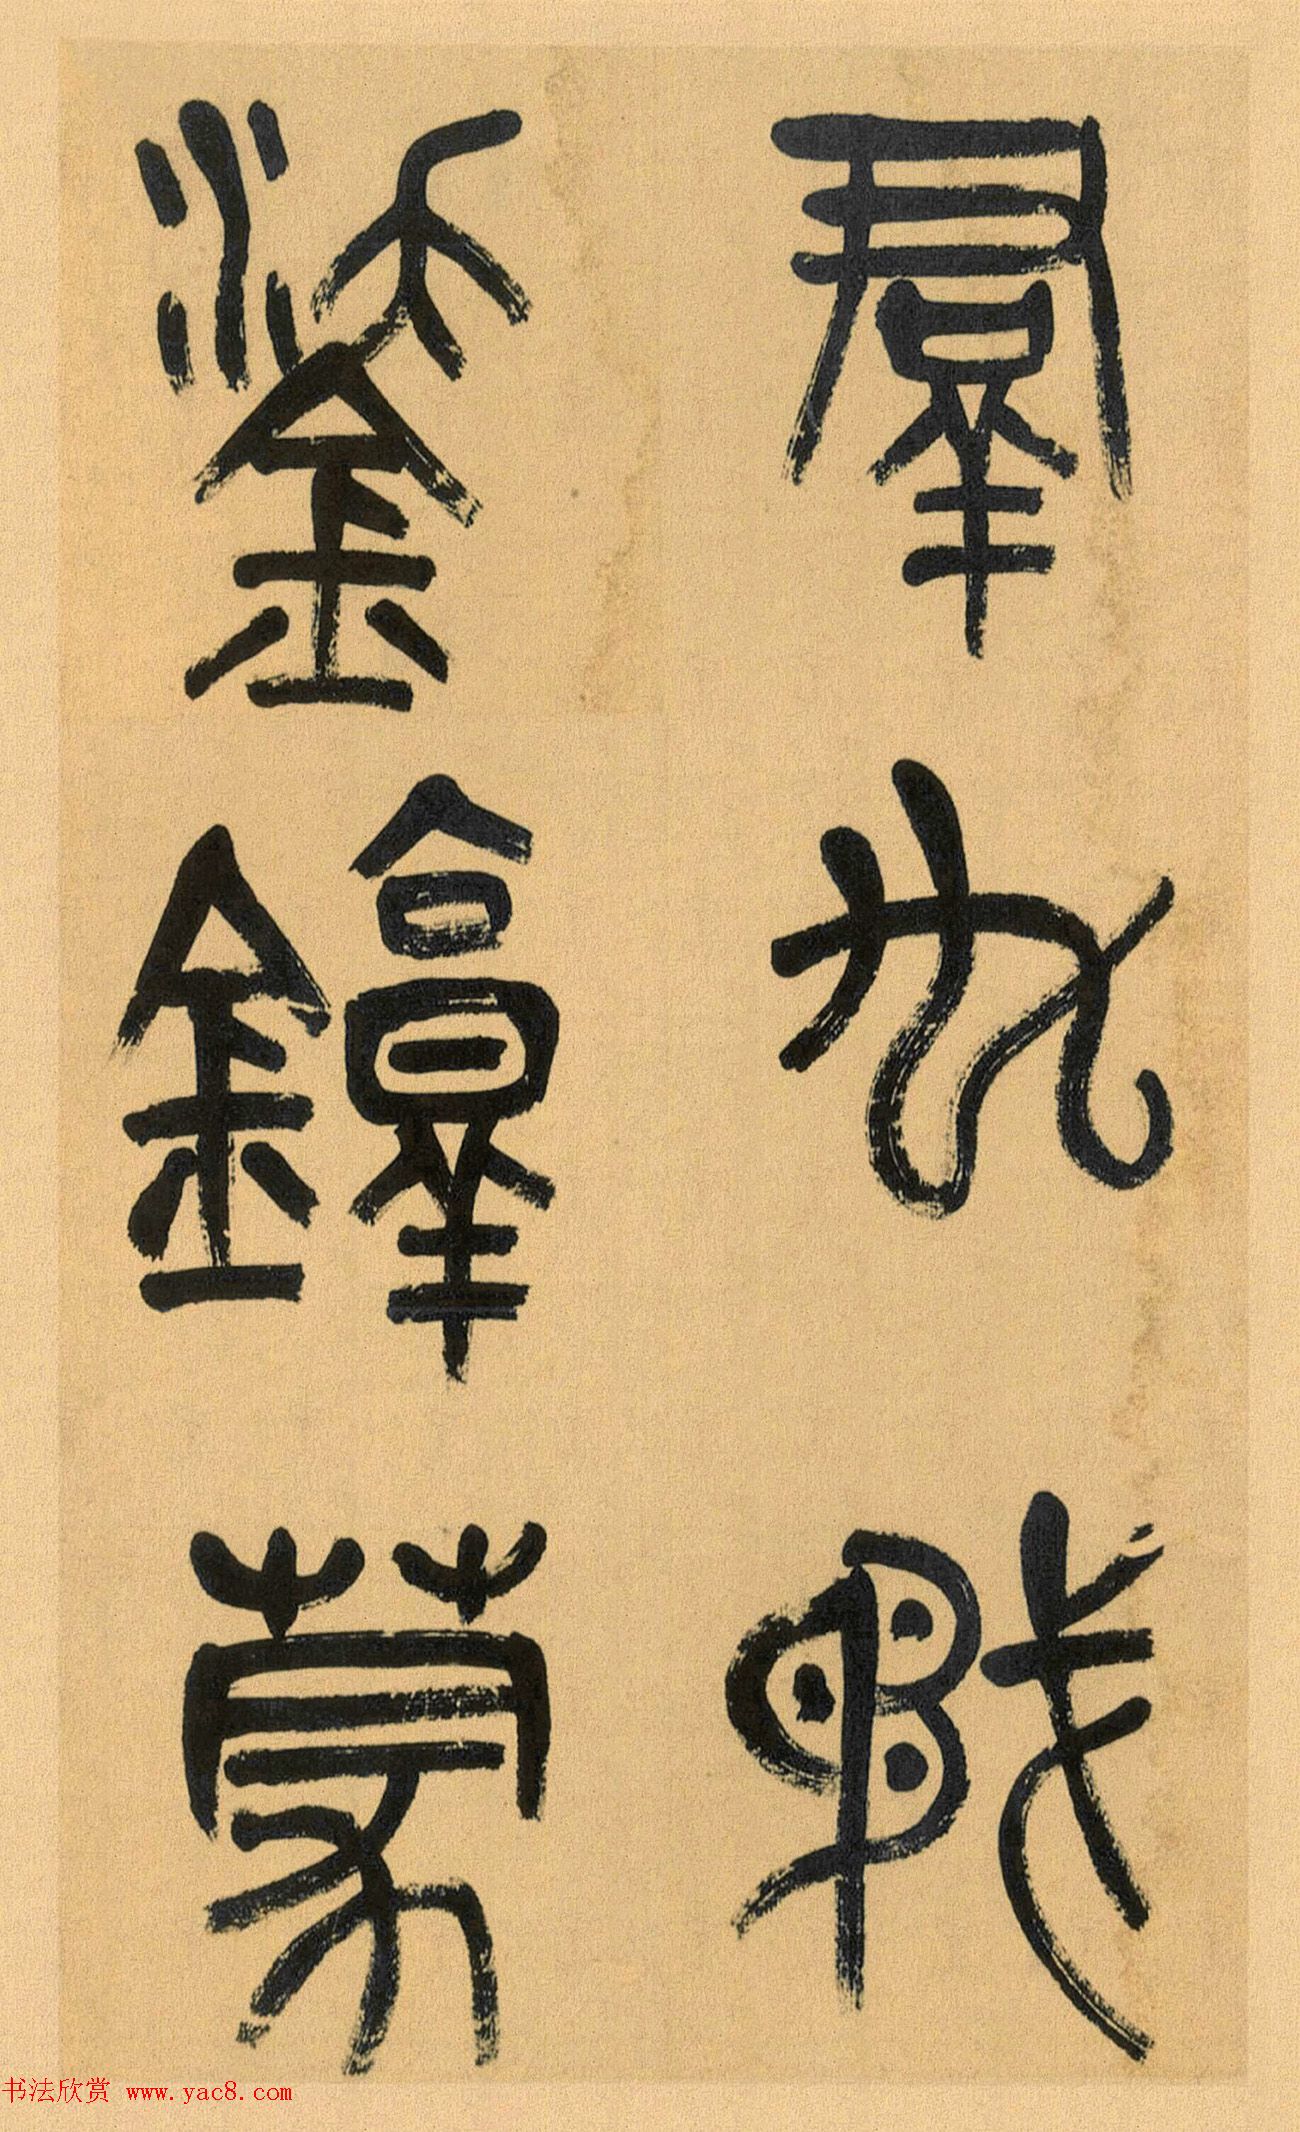 羣厹矛
鋈錞蒙
书法欣赏 www.yac8.com